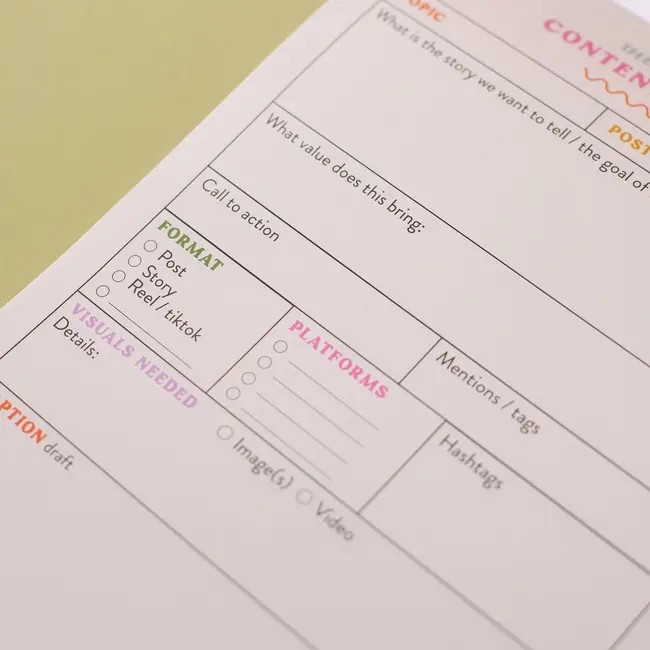 OPIC
CONTEN
What is the story we want to tell / the goal of
POST
What value does this bring:
Call to action
FORMAT
Post
Story
Reel / tiktok
PLATFORMS
Mentions / tags
Hashtags
VISUALS NEEDED
Details:
Image(s) Video
PTION draft